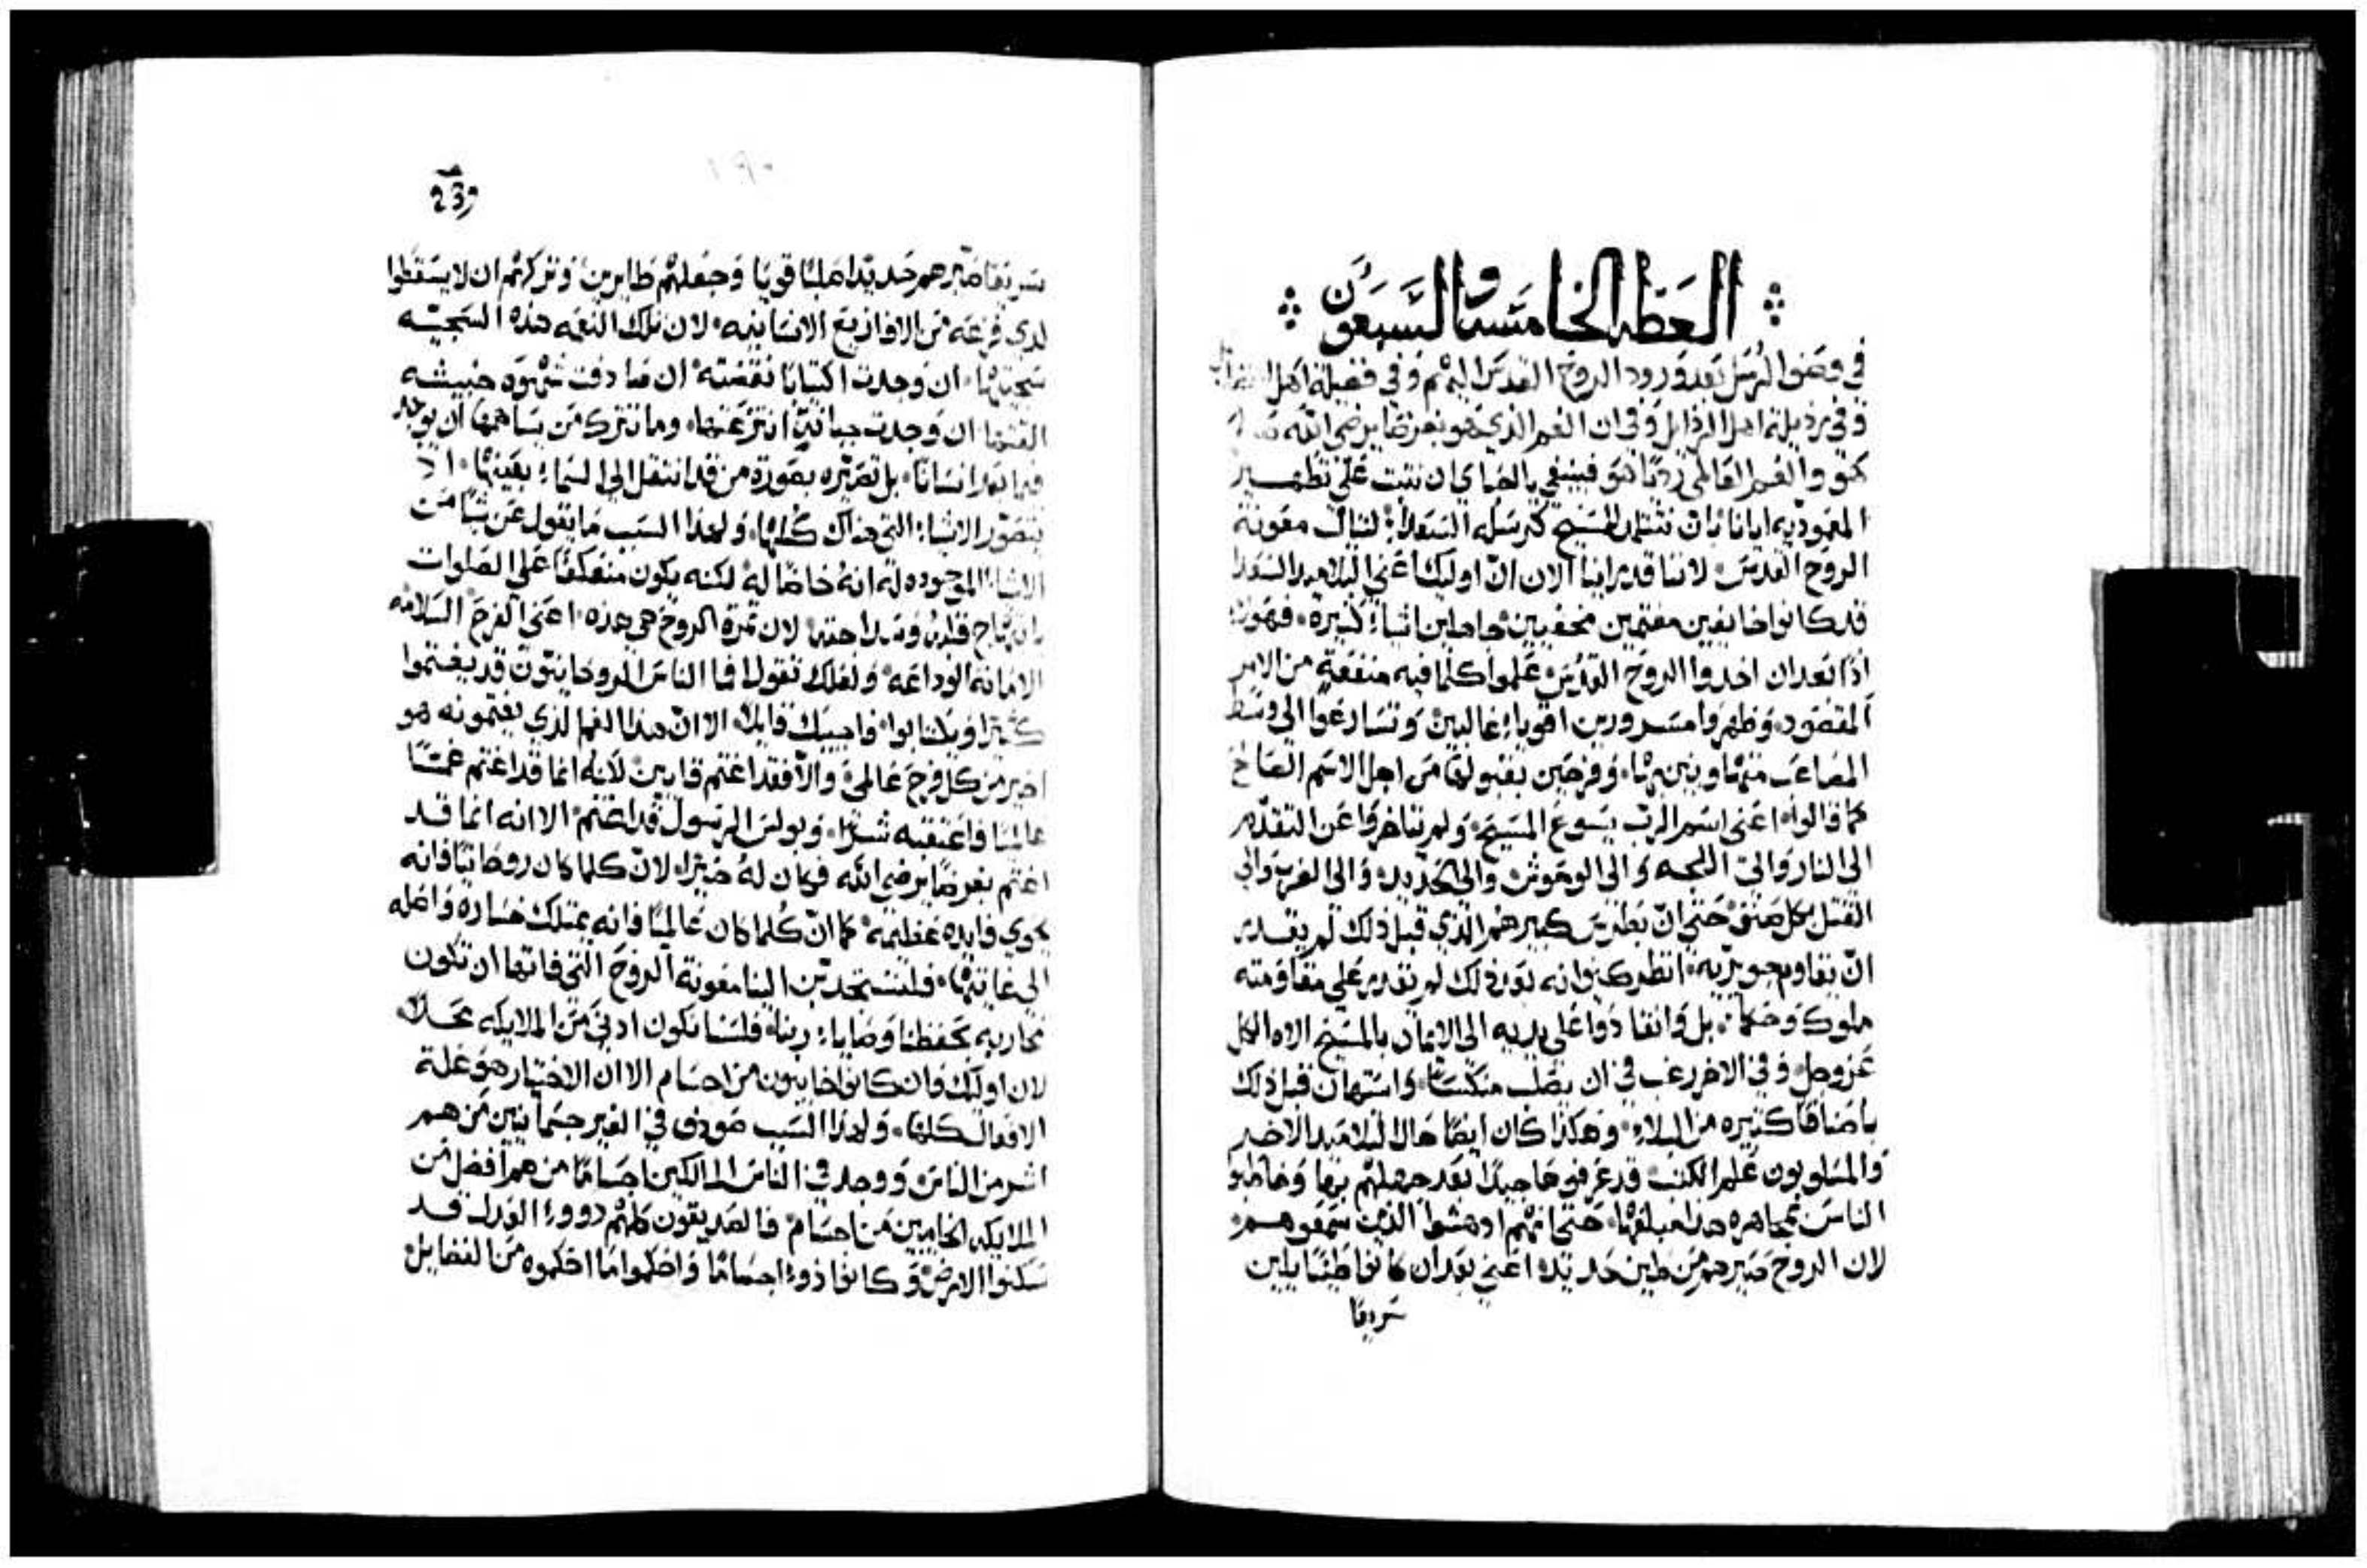 العظه الخامسه والسبعون
في فضل الرسل بعد ورود الروح القدس اليهم وفي فضيلة اهل
وفي رذيلة اهل الرذايل وفي ان الغم الذي هو بغرض يرضي الله
والغم العالمي فينبغي ان نثبت علي تطهير
المعموديه ابانا وان نتشبه المسيح كرسله السعداء لننال معونة
الروح القدس لاننا قد راينا الان ان اوليك اعني التلاميذ السعدا
قد كانوا خايفين مغتمين مختفيين جاهلين اشياء كثيرة فهولاء
اذا بعد ان اخدوا الروح القدس علموا كلما فيه منفعة من الامر
المقصود وظهروا مسرورين اقوياء غالبين وتسارعوا الي وسط
المصاعب وفرحين بقبولها من اجل الاسم الصالح
كما قالوا اعني اسم الرب يسوع المسيح ولم يتاخروا عن التقدم
الي النار والي اللجه والي الوحوش والي الحديد والي الغربه والي
القتل بكل صنف حتي ان بطرس كبيرهم الذي قبل ذلك لم يقدر
ان يقاوم جويريه انظر كيف انه بعد ذلك لم تقدر علي مقاومته
ملوك وحكماء بل وانقادوا علي يديه الي الايمان بالمسيح الاه الكل
عز وجل وفي الاخر رغب في ان يصلب منكسا واستهان قبل ذلك
باصنافا كثيره من البلاء وهكذا كان ايضا حال التلاميذ الاخر
والمسلوبون علم الكتب قد عرفوها جيدا بعد جهلهم بها وخاطبوا
الناس بمجاهره هذا مبلغها حتي انهم ادهشوا الذين سمعوهم
لان الروح صيرهم من طين حديد اعني بعد ان كانوا طينا يلين
سريعا
239
١٩٠
سريعا صيرهم حديدا صلبا قويا وجعلتهم طايرين وتركتهم ان لا يسقطوا
لدي فزعه من الافازيع الانسانيه لان تلك النعمه هذه السجيه
سجيتها ان وجدت اكتيابا نقضته ان صادفت شهوه خبيثه
افنتها ان وجدت جبانة انتزعتها وما تترك من يساهمها ان يوجد
فيما بعد انسانا بل تصيره بصورة من قد انتقل الي السماء بعينها اذ
يتصور الاشياء التي هناك كلها ولهذا السبب ما يقول عن شيا من
الاشياء الموجوده له انه خاصا له لكنه يكون منعكفا علي الصلوات
لان ثمرة الروح هي هذه اعني الفرح السلامه
الامانه الوداعه ولعلك تقول فما الناس الروحانيون قد يغتموا
كثيرا فاجيبك قايلا الا ان هذا الغم الذي يغتمونه هو
اخير من كل فرح عالمي والا فقد اغتم قايين لانه انما قد اغتم غما
عالميا فاعتقبه شرا وبولس الرسول قد اغتم الا انه انما قد
اغتم بغرضا يرضي الله فكان له خيرا لان كلما كان روحانيا فانه
يحوي فايده عظيمه كما ان كلما كان عالميا فانه يمتلك خساره واصله
الي غايتها فلنستجدبن الينا معونة الروح التي فاتها ان تكون
محاربه بحفظنا وصاياء ربنا فلسنا نكون ادني من الملايكه محلا
لان اوليك وان كانوا خايبون من اجسام الا ان الاختيار هو علة
الافعال كلها ولهذا السبب صودف في الغير جسمانيين من هم
اشر من الناس ووجد في الناس المالكين اجساما من هم افضل من
الملايكه الخايبين من اجسام فالصديقون كلهم ذووء العدل قد
سكنوا الارض وكانوا ذوء اجساما واحكموا ما احكموه من الفضايل